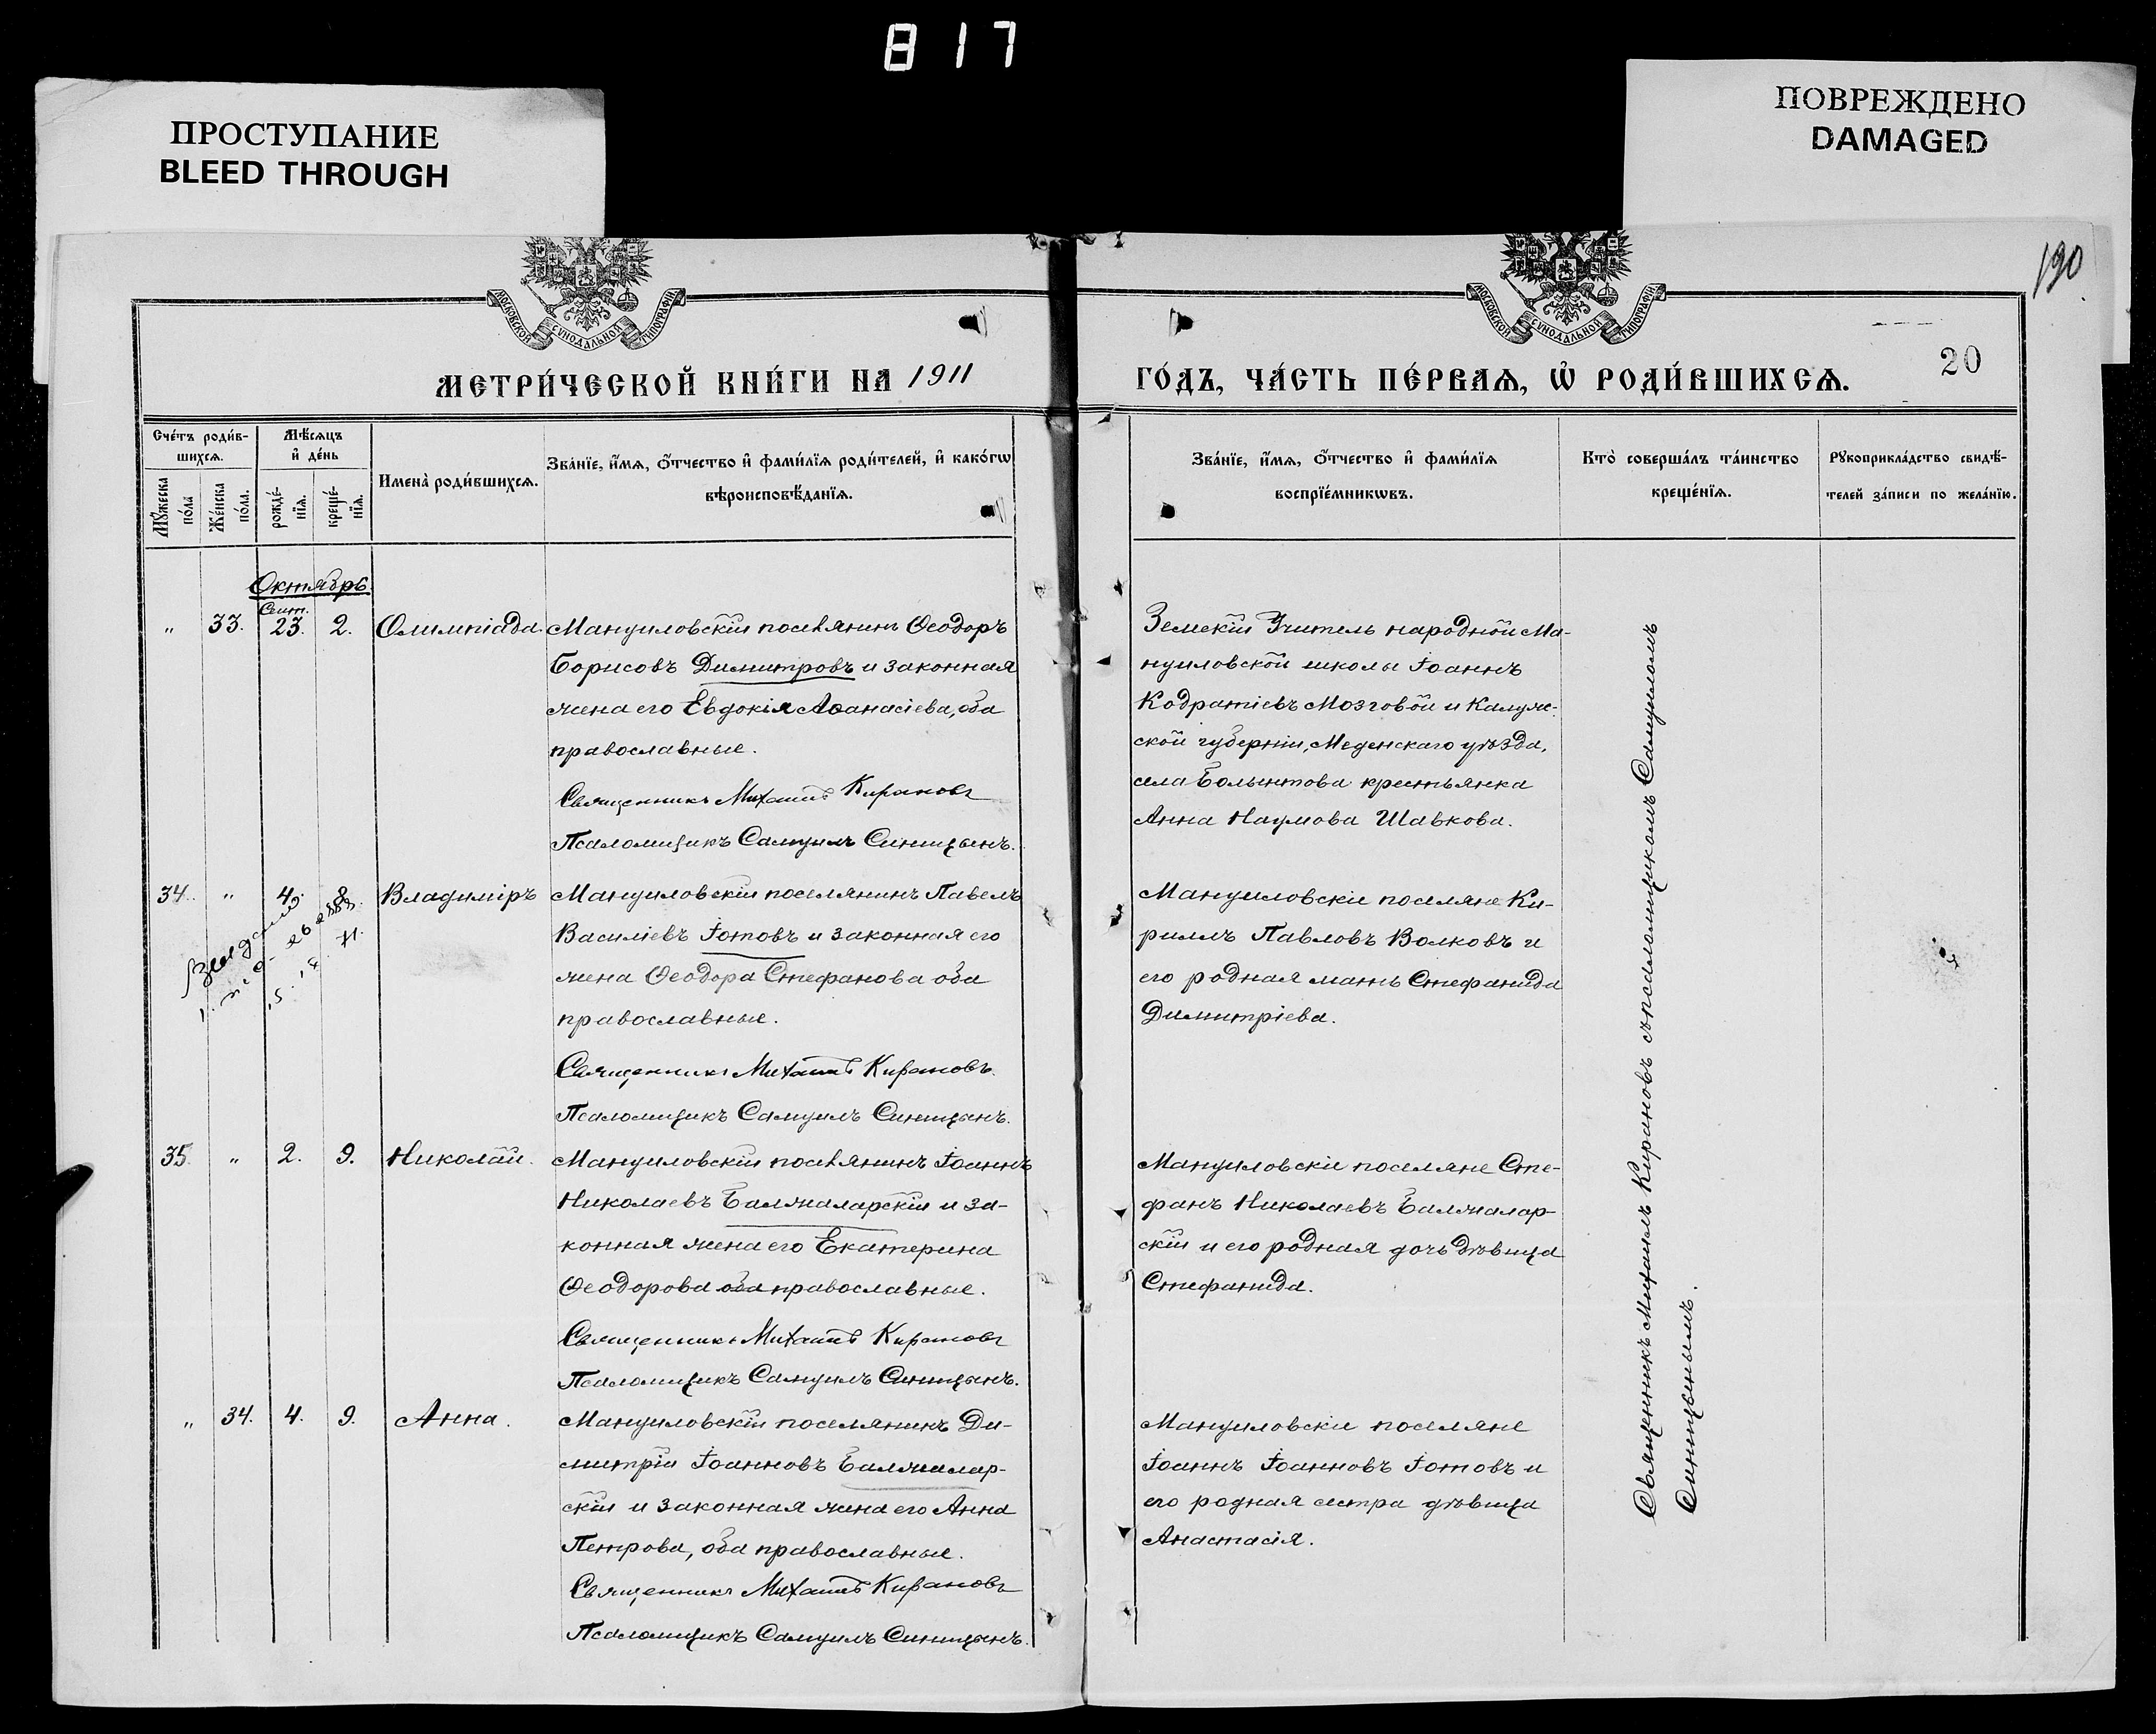 817
ПРОСТУПАНИЕ
BLEED THROUGH
ПОВРЕЖДЕНО
DAMAGED
190
МОСКОВСКОЙ СѴНОДАЛЬНОЙ ТИПОГРАФІИ
МОСКОВСКОЙ СѴНОДАЛЬНОЙ ТИПОГРАФІИ
20
МЕТРИ́ЧЕСКОЙ КНИ́ГИ НА 1911
ГО́ДЪ, ЧА́СТЬ ПЕ́РВАѦ, Ѡ҆ РОДИ́ВШИХСѦ.
Сче́тъ роди́в-
шихсѧ.
Мѣ́сѧцъ
и҆ де́нь
Мꙋ́жеска
по́ла
Же́нска
по́ла.
рожде́-
нїѧ.
креще́-
нїѧ.
Имена̀ роди́вшихсѧ.
Зва́нїе, и҆́мѧ, ѻ҆́тчество и҆ фами́лїѧ роди́телей, и҆ како́гѡ
вѣроисповѣ́данїѧ.
Зва́нїе, и҆́мѧ, ѻ҆́тчество и҆ фами́лїѧ
воспрїе́мникѡвъ.
Кто̀ соверша́лъ та́инство
креще́нїѧ.
Рꙋкоприкла́дство свидѣ́-
телей за́писи по жела́нїю.
Октябрь.
Сент.
" 33. 23. 2. Олимпіада.
Мануиловскій поселянинъ Ѳеодоръ
Борисовъ Димитровъ и законная
жена его Евдокія Аѳанасіева, оба
православные.
Священникъ Михаилъ Кирановъ
Псаломщикъ Самуилъ Синицынъ.
Земскій Учитель народной Ма-
нуиловской школы Іоаннъ
Кодратіевъ Мозговой и Калуж-
ской губерніи, Меденскаго уѣзда,
села Болынтова крестьянка
Анна Наумова Шавкова.
34. " 4. 8. Владиміръ
Мануиловскій поселянинъ Павелъ
Василіевъ Іотовъ и законная его
жена Ѳеодора Стефанова оба
православные.
Священникъ Михаилъ Кирановъ.
Псаломщикъ Самуилъ Синицынъ.
Мануиловскіе поселяне Ки-
риллъ Павловъ Волковъ и
его родная мать Стефанида
Димитріева.
35. " 2. 9. Николай.
Мануиловскій поселянинъ Іоаннъ
Николаевъ Балжаларскій и за-
конная жена его Екатерина
Ѳеодорова оба православные.
Священникъ Михаилъ Кирановъ
Псаломщикъ Самуилъ Синицынъ.
Мануиловскіе поселяне Сте-
фанъ Николаевъ Балжалар-
скій и его родная дочь дѣвица
Стефанида.
" 34. 4. 9. Анна.
Мануиловскій поселянинъ Ди-
митрій Іоанновъ Балжалар-
скій и законная жена его Анна
Петрова, оба православные.
Священникъ Михаилъ Кирановъ
Псаломщикъ Самуилъ Синицынъ.
Мануиловскіе поселяне
Іоаннъ Іоанновъ Іотовъ и
его родная сестра дѣвица
Анастасія.
Священникъ Михаилъ Кирановъ съ псаломщикомъ Самуиломъ
Синицынымъ.